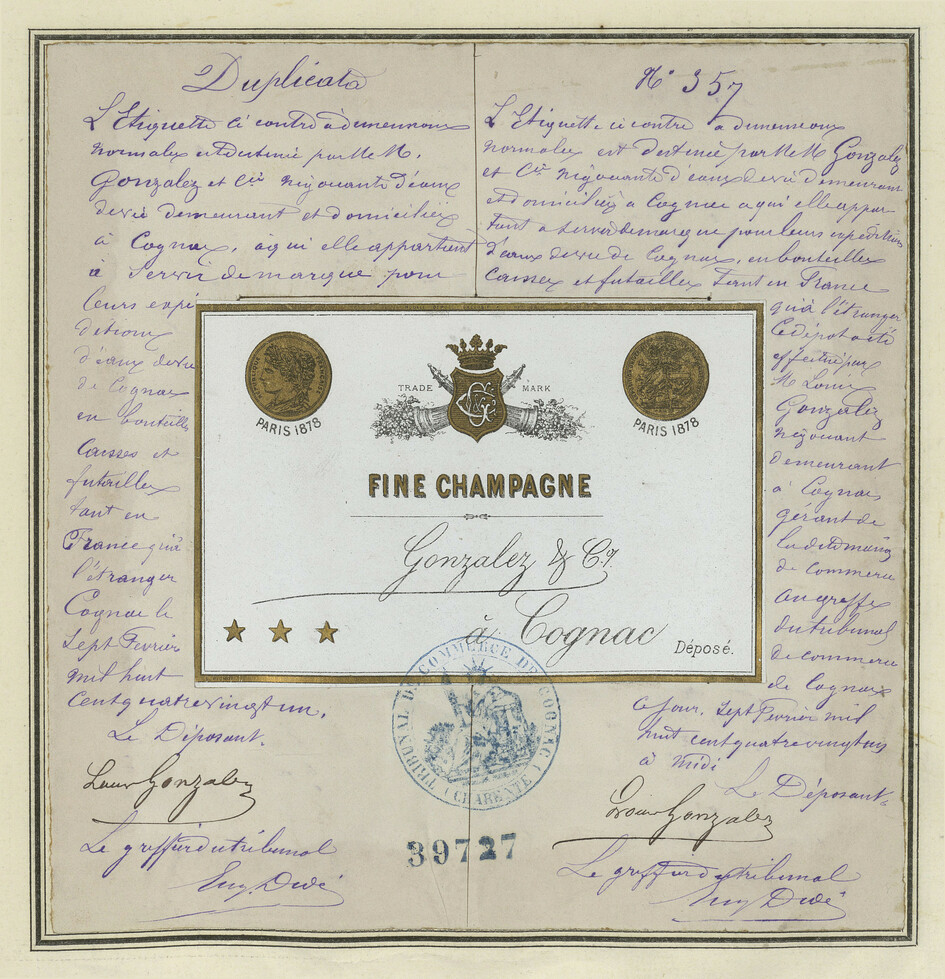 Duplicata
L'Etiquette ci contre à dimensions
normales est destinée par M.M.
Gonzalez et Cie négociants d'eaux
de vie demeurant et domiciliés
à Cognac, à qui elle appartient
à servir de marque pour
leurs expé
ditions
d'eaux de vie
de Cognac
en bouteilles
Caisses et
futailles
tant en
France qu'à
l'étranger
Cognac le
Sept Février
mil huit
cent quatre vingt un.
Le Déposant.
Louis Gonzalez
Le greffier du tribunal
Eug Dedé
N° 357
L'Etiquette ci contre à dimensions
normales est destinée par M.M. Gonzalez
et Cie négociants d'eaux de vie demeurant
et domiciliés à Cognac a qui elle appar
tient a servir de marque pour leurs expéditions
d'eaux de vie de Cognac, en bouteilles
caisses et futailles tant en France
qu'à l'étranger
Ce dépot a été
effectué par
M Louis
Gonzalez
négociant
demeurant
à Cognac
gérant de
la dite maison
de commerce
au greffe
du tribunal
de commerce
de Cognac
ce jour, Sept Février mil
huit cent quatre vingt un
à midi
Le Déposant
Louis Gonzalez
Le greffier du tribunal
Eug Dedé
PARIS 1878
TRADE MARK
PARIS 1878
FINE CHAMPAGNE
Gonzalez & Co.
à Cognac
Déposé.
TRIBUNAL DE COMMERCE DE COGNAC
(CHARENTE)
39727